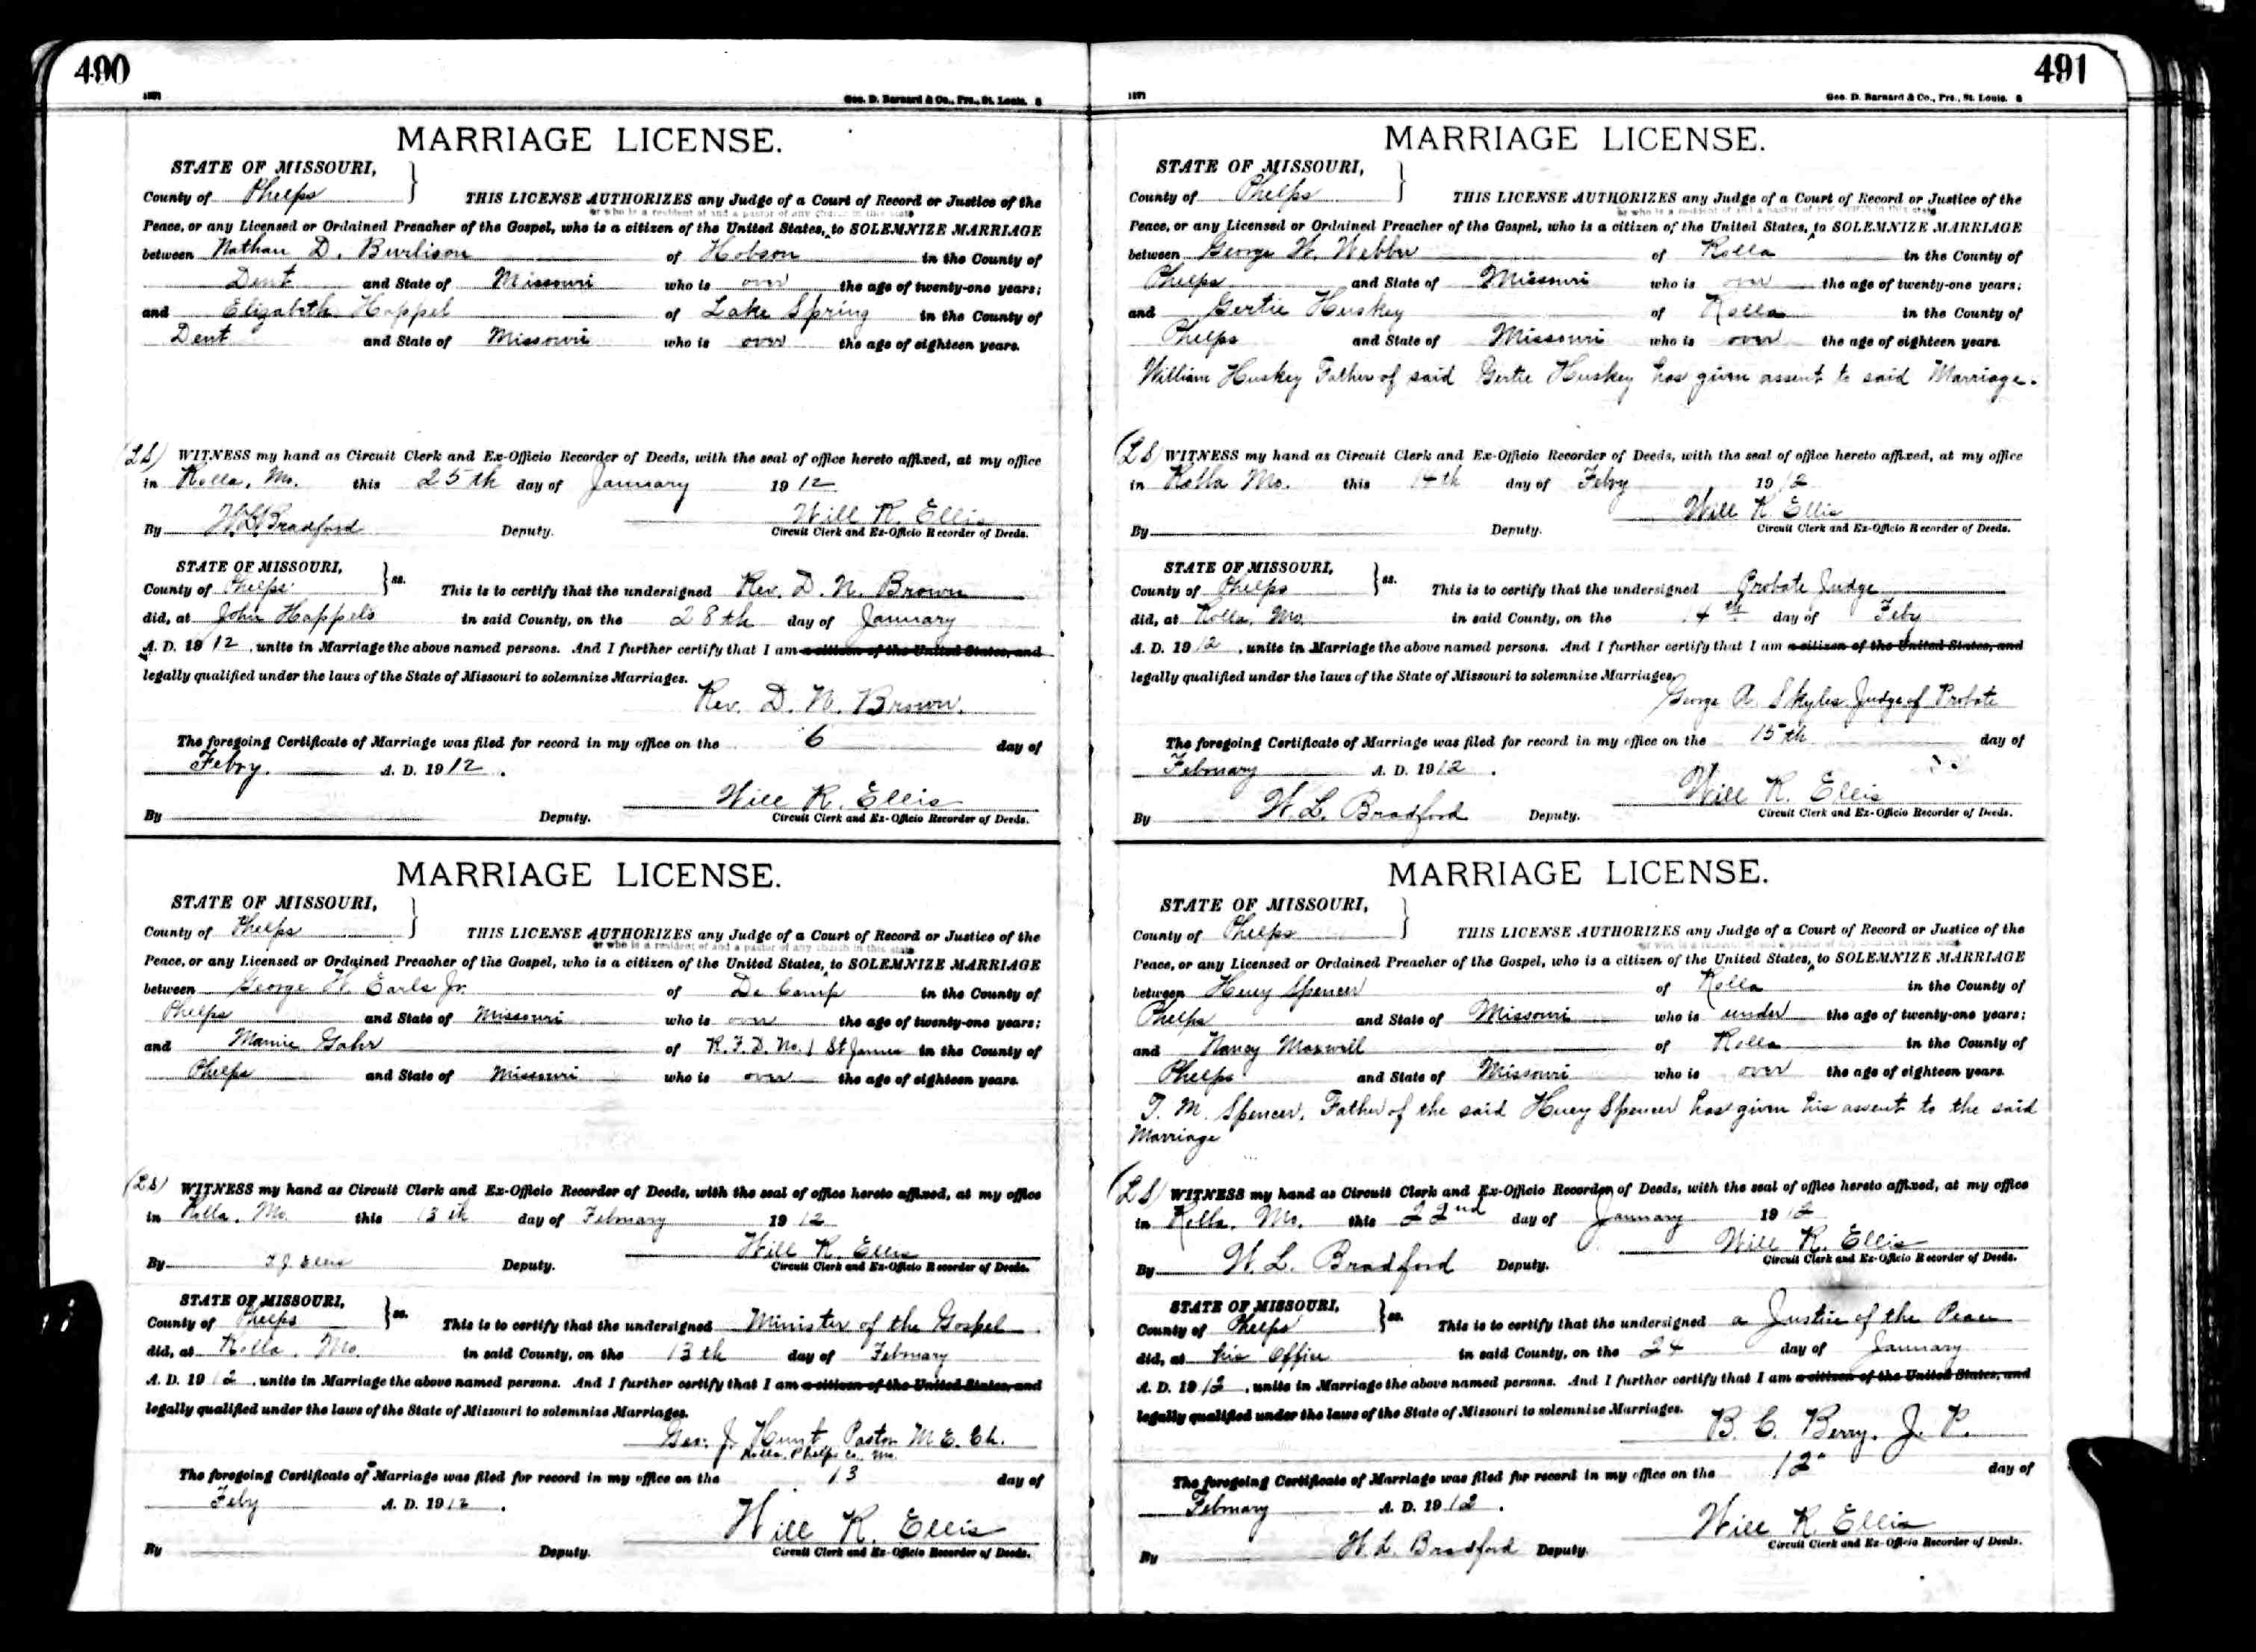 490
1271
Geo. D. Barnard & Co., Pre., St. Louis. S
MARRIAGE LICENSE.
STATE OF MISSOURI,
County of Phelps THIS LICENSE AUTHORIZES any Judge of a Court of Record or Justice of the
or who is a resident of and a pastor of any church in this state
Peace, or any Licensed or Ordained Preacher of the Gospel, who is a citizen of the United States, to SOLEMNIZE MARRIAGE
between Nathan D. Burlison of Hobson in the County of
Dent and State of Missouri who is over the age of twenty-one years;
and Elizabeth Happel of Lake Spring in the County of
Dent and State of Missouri who is over the age of eighteen years.
(LS) WITNESS my hand as Circuit Clerk and Ex-Officio Recorder of Deeds, with the seal of office hereto affixed, at my office
in Rolla, Mo. this 25th day of January 1912
By W.L. Bradford Deputy. Will R. Ellis
Circuit Clerk and Ex-Officio Recorder of Deeds.
STATE OF MISSOURI,
County of Phelps ss. This is to certify that the undersigned Rev. D. N. Brown
did, at John Happels in said County, on the 28th day of January
A. D. 1912, unite in Marriage the above named persons. And I further certify that I am a citizen of the United States, and
legally qualified under the laws of the State of Missouri to solemnize Marriages.
Rev. D. N. Brown.
The foregoing Certificate of Marriage was filed for record in my office on the 6 day of
Febry. A. D. 1912.
Will R. Ellis
By Deputy. Circuit Clerk and Ex-Officio Recorder of Deeds.
MARRIAGE LICENSE.
STATE OF MISSOURI,
County of Phelps THIS LICENSE AUTHORIZES any Judge of a Court of Record or Justice of the
or who is a resident of and a pastor of any church in this state
Peace, or any Licensed or Ordained Preacher of the Gospel, who is a citizen of the United States, to SOLEMNIZE MARRIAGE
between George W. Earls Jr. of De Camp in the County of
Phelps and State of Missouri who is over the age of twenty-one years;
and Mamie Gahr of R.F.D. No. 1 St James in the County of
Phelps and State of Missouri who is over the age of eighteen years.
(LS) WITNESS my hand as Circuit Clerk and Ex-Officio Recorder of Deeds, with the seal of office hereto affixed, at my office
in Rolla, Mo. this 13th day of February 1912
Will R. Ellis
By T J Ellis Deputy. Circuit Clerk and Ex-Officio Recorder of Deeds.
STATE OF MISSOURI,
County of Phelps ss. This is to certify that the undersigned Minister of the Gospel
did, at Rolla, Mo. in said County, on the 13th day of February
A. D. 1912, unite in Marriage the above named persons. And I further certify that I am a citizen of the United States, and
legally qualified under the laws of the State of Missouri to solemnize Marriages.
Geo. J. Hunt Pastor M.E. Ch.
Rolla, Phelps Co., Mo.
The foregoing Certificate of Marriage was filed for record in my office on the 13 day of
Feby A. D. 1912.
Will R. Ellis
By Deputy. Circuit Clerk and Ex-Officio Recorder of Deeds.
491
1271
Geo. D. Barnard & Co., Pre., St. Louis. S
MARRIAGE LICENSE.
STATE OF MISSOURI,
County of Phelps THIS LICENSE AUTHORIZES any Judge of a Court of Record or Justice of the
or who is a resident of and a pastor of any church in this state
Peace, or any Licensed or Ordained Preacher of the Gospel, who is a citizen of the United States, to SOLEMNIZE MARRIAGE
between George W. Webber of Rolla in the County of
Phelps and State of Missouri who is over the age of twenty-one years;
and Gertie Huskey of Rolla in the County of
Phelps and State of Missouri who is over the age of eighteen years.
William Huskey Father of said Gertie Huskey has given assent to said Marriage.
(LS) WITNESS my hand as Circuit Clerk and Ex-Officio Recorder of Deeds, with the seal of office hereto affixed, at my office
in Rolla Mo. this 14th day of Febry 1912
Will R. Ellis
By Deputy. Circuit Clerk and Ex-Officio Recorder of Deeds.
STATE OF MISSOURI,
County of Phelps ss. This is to certify that the undersigned Probate Judge
did, at Rolla, Mo. in said County, on the 14th day of Feby
A. D. 1912, unite in Marriage the above named persons. And I further certify that I am a citizen of the United States, and
legally qualified under the laws of the State of Missouri to solemnize Marriages.
George A. Skyles Judge of Probate
The foregoing Certificate of Marriage was filed for record in my office on the 15th day of
February A. D. 1912.
Will R. Ellis
By W. L. Bradford Deputy. Circuit Clerk and Ex-Officio Recorder of Deeds.
MARRIAGE LICENSE.
STATE OF MISSOURI,
County of Phelps THIS LICENSE AUTHORIZES any Judge of a Court of Record or Justice of the
or who is a resident of and a pastor of any church in this state
Peace, or any Licensed or Ordained Preacher of the Gospel, who is a citizen of the United States, to SOLEMNIZE MARRIAGE
between Huey Spencer of Rolla in the County of
Phelps and State of Missouri who is under the age of twenty-one years;
and Nancy Maxwell of Rolla in the County of
Phelps and State of Missouri who is over the age of eighteen years.
T. M. Spencer, Father of the said Huey Spencer has given his assent to the said
Marriage
(LS) WITNESS my hand as Circuit Clerk and Ex-Officio Recorder of Deeds, with the seal of office hereto affixed, at my office
in Rolla, Mo. this 22nd day of January 1912
Will R. Ellis
By W. L. Bradford Deputy. Circuit Clerk and Ex-Officio Recorder of Deeds.
STATE OF MISSOURI,
County of Phelps ss. This is to certify that the undersigned a Justice of the Peace
did, at his Office in said County, on the 24 day of January
A. D. 1912, unite in Marriage the above named persons. And I further certify that I am a citizen of the United States, and
legally qualified under the laws of the State of Missouri to solemnize Marriages.
B. C. Berry, J. P.
The foregoing Certificate of Marriage was filed for record in my office on the 12" day of
February A. D. 1912.
Will R. Ellis
By W. L. Bradford Deputy. Circuit Clerk and Ex-Officio Recorder of Deeds.